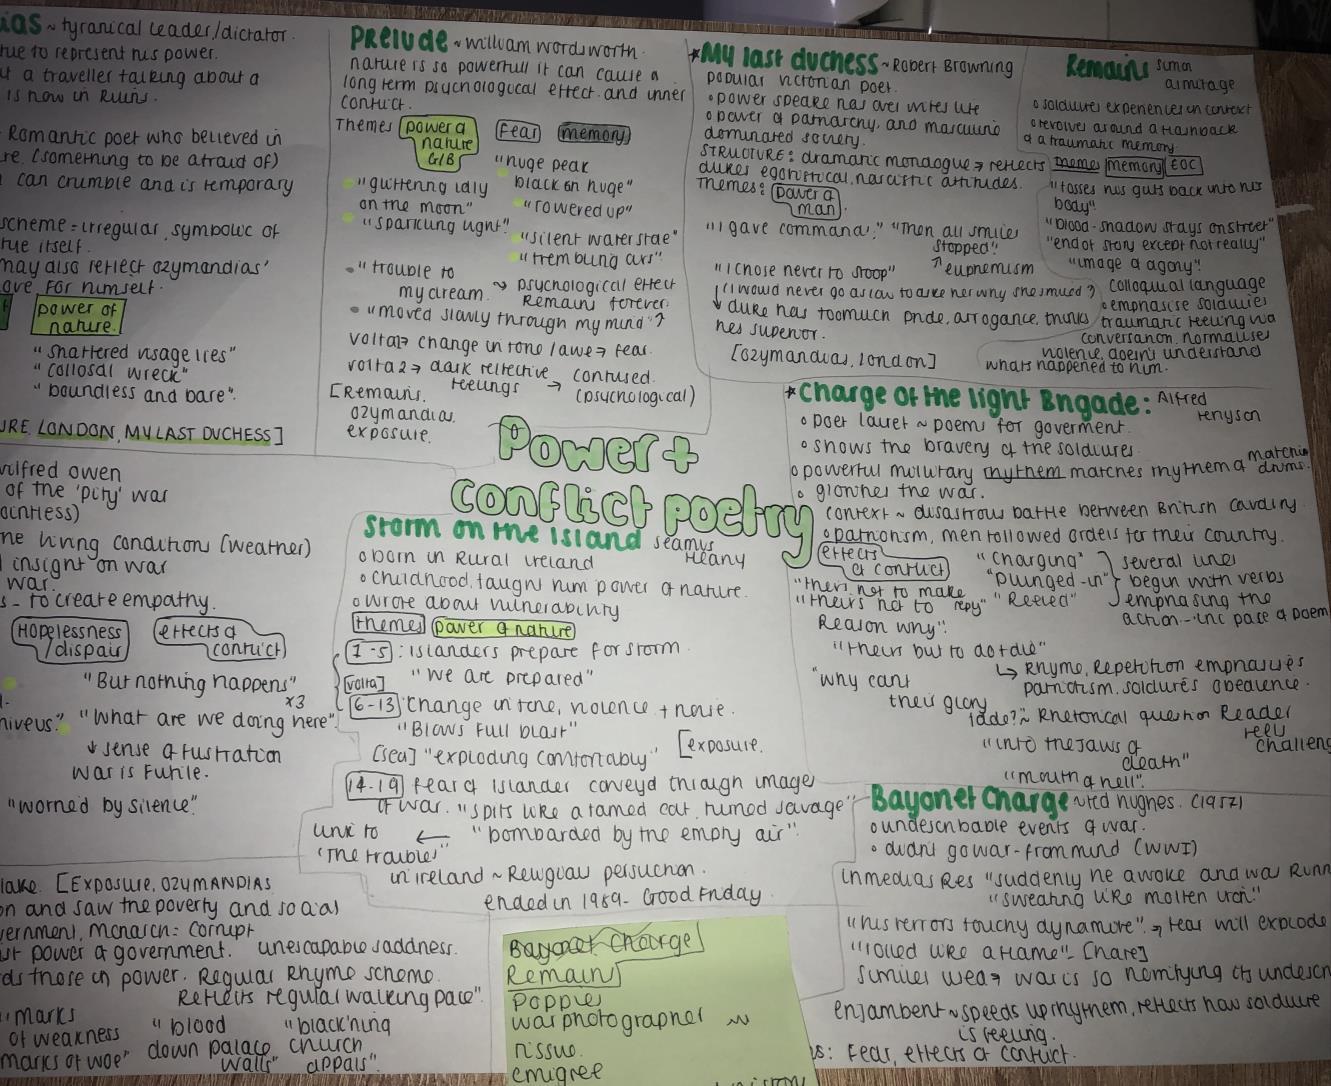 ias ~ tyranical leader/dictator.
tue to represent his power.
ut a traveller talking about a
is now in Ruins.
Romantic poet who believed in
re. (something to be afraid of)
can crumble and is temporary
scheme = irregular, symbolic of
tue itself.
may also reflect ozymandias'
ove for himself.
power of
nature.
"shattered visage lies"
"collosal wreck"
"boundless and bare".
URE, LONDON, MY LAST DUCHESS]
Prelude ~ william wordsworth.
nature is so powerfull it can cause a
long term psychological effect and inner
conflict.
Themes power of
nature
G/B
Fear
memory
"huge peak
black an huge"
"glittering idly
on the moon"
"towered up"
"sparkling light"
"silent water stole"
"trembling oars"
"trouble to
my dream. ~> psychological effect
Remains forever.
"moved slowly through my mind" ↗
volta → change in tone / awe → fear.
volta 2 → dark reflective
feelings → confused.
(psychological)
[Remains.
ozymandias.
exposure.
*My last duchess ~ Robert Browning
popular victorian poet.
power speake has over wifes life
power of patriarchy, and masculine
dominated society.
STRUCTURE: dramatic monologue → reflects
dukes egotistical, narcistic attitudes.
Themes: power of
man.
"I gave command;" "Then all smiles
stopped".
↑ euphemism
"I chose never to stoop"
(I would never go as low to aske her why she smiled?)
↓ duke has too much pride, arrogance, thinks
hes superior.
[ozymandias, london]
Remains Simon
armitage
soldiures experiences in context
revolves around a flashback
of a traumatic memory.
themes memory EOC
"tosses his guts back into his
body".
"blood-shadow stays on street"
"end of story except not really"
"image of agony".
Colloqual language
emphasise soldiures
traumatic feeling via
conversation. normalises
violence, doesn't understand
whats happened to him.
Power +
conflict poetry
*Charge of the light Brigade: Alfred
tenyson
poet lauret ~ poems for goverment.
shows the bravery of the soldiures.
powerful millutary rhythem matches rhythem of matching
drums.
glorifies the war.
context ~ disastrous battle between British cavalry.
patriotism, men followed orders for their country.
effects
of conflict
"Charging"
"plunged-in"
"Reeled"
several lines
begin with verbs
emphasing the
action - inc pace of poem
"theirs not to make reply"
"theirs not to
Reason why".
"theirs but to do + die"
↳ Rhyme, Repetition emphasises
patriotism, soldiures obedience.
"why cant
their glory
fade?" ~ Rhetorical question Reader
feels
challeng
"into the jaws of
death"
"mouth of hell".
wilfred owen
of the 'pity' war
ointless)
he living condition (weather)
insight on war
war.
s - to create empathy.
Hopelessness
/dispair
effects of
conflict
"But nothing happens"
x3
hiveus". "What are we doing here".
↓ sense of fustration
war is Futile.
"worried by silence"
Storm on the Island seamus
Heany
born in Rural Ireland
childhood, taught him power of nature.
wrote about vulnerability
themes power of nature
1-5: islanders prepare for storm.
"We are prepared"
[volta]
6-13: Change in tone, violence + noise.
"Blows Full blast"
[sea] "exploding comfortably" [exposure.
14-19 fear of islander conveyd through image
of war. "spits like a tamed cat, turned savage"
link to ← "bombarded by the empty air".
'The troubles'
in ireland ~ Religious persuction.
ended in 1969 - Good Friday.
lake. [Exposure, OZYMANDIAS
on and saw the poverty and social
vernment, Monarch = corrupt
ut power of government. unescapable saddness.
ds those in power. Regular Rhyme scheme.
Reflects regular walking pace".
"marks
of weakness
marks of woe"
"blood
down palace
walls"
"black'ning
church
appals".
Bayonet Charge
Remain
Poppies
war photographer ~
Tissue.
emigree
Bayonet Charge ~ted hughes. (1957)
undescribable events of war.
didnt go war - from mind (WWI)
inmedias Res "suddenly he awoke and was Runn
"sweating like molten iron."
"his terrors touchy dynamite". → fear will explode
"rolled like a flame" - [hare]
Similies used → war is so horrifying its undescri
enjambent ~ speeds up rhythem, reflects how soldiure
is feeling.
s: Fear, effects of conflict.